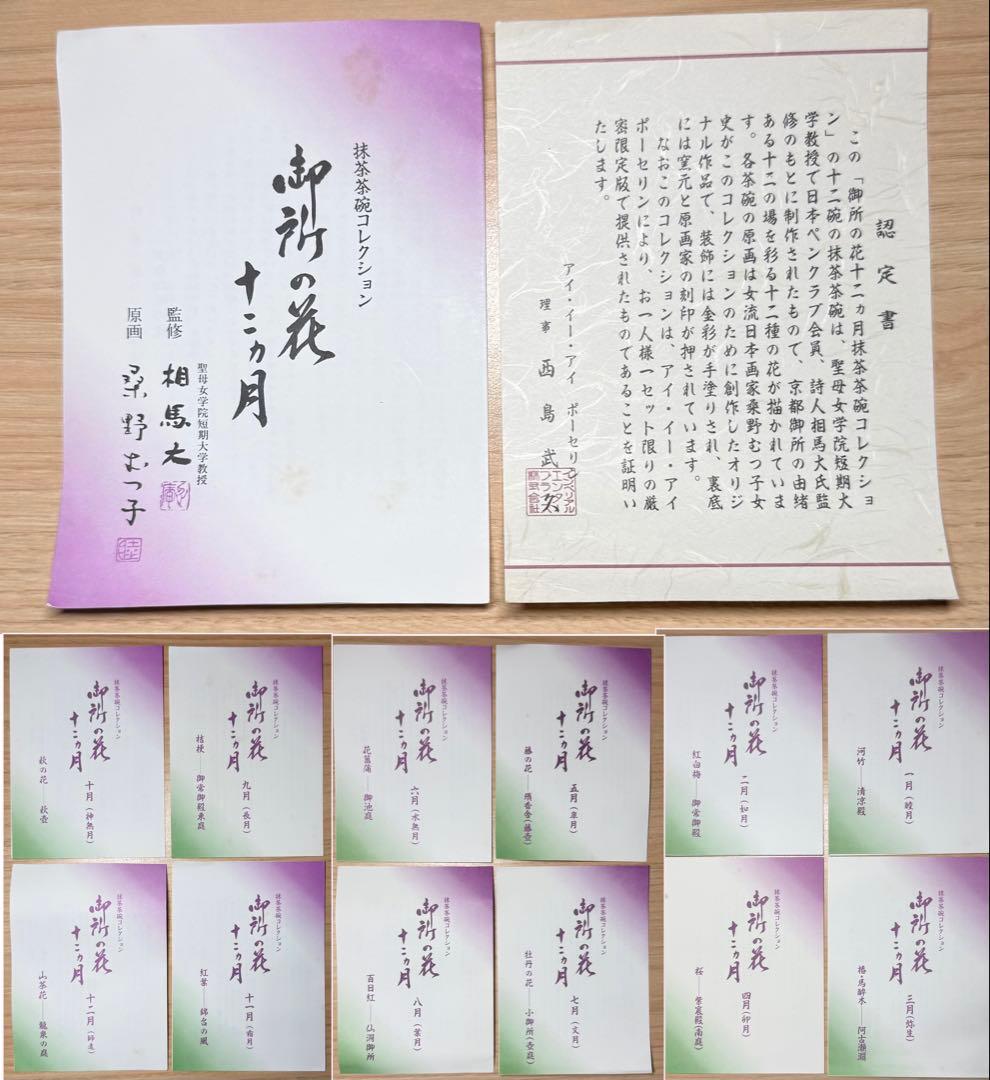 抹茶茶碗コレクション
御所の花
十二ヵ月
聖母女学院短期大学教授
監修 相馬大
原画 桑野むつ子
認定書
この「御所の花十二ヵ月抹茶茶碗コレクショ
ン」の十二碗の抹茶茶碗は、聖母女学院短期大
学教授で日本ペンクラブ会員、詩人相馬大氏監
修のもとに制作されたもので、京都御所の由緒
ある十二の場を彩る十二種の花が描かれていま
す。各茶碗の原画は女流日本画家桑野むつ子女
史がこのコレクションのために創作したオリジ
ナル作品で、装飾には金彩が手塗りされ、裏底
には窯元と原画家の刻印が押されています。
なおこのコレクションは、アイ・イー・アイ
ポーセリンにより、お一人様一セット限りの厳
密限定版で提供されたものであることを証明い
たします。
アイ・イー・アイ ポーセリン
理事 西島武
抹茶茶碗コレクション
御所の花
十二ヵ月
一月(睦月)
河竹——清涼殿
抹茶茶碗コレクション
御所の花
十二ヵ月
二月(如月)
紅白梅——御常御殿
抹茶茶碗コレクション
御所の花
十二ヵ月
五月(皐月)
藤の花——飛香舎(藤壺)
抹茶茶碗コレクション
御所の花
十二ヵ月
六月(水無月)
花菖蒲——御池庭
抹茶茶碗コレクション
御所の花
十二ヵ月
九月(長月)
桔梗——御常御殿東庭
抹茶茶碗コレクション
御所の花
十二ヵ月
十月(神無月)
萩の花——萩壺
抹茶茶碗コレクション
御所の花
十二ヵ月
三月(弥生)
椿・馬酔木——阿古瀬淵
抹茶茶碗コレクション
御所の花
十二ヵ月
四月(卯月)
桜——紫宸殿(南庭)
抹茶茶碗コレクション
御所の花
十二ヵ月
七月(文月)
牡丹の花——小御所(壺庭)
抹茶茶碗コレクション
御所の花
十二ヵ月
八月(葉月)
百日紅——仙洞御所
抹茶茶碗コレクション
御所の花
十二ヵ月
十一月(霜月)
紅葉——錦台の風
抹茶茶碗コレクション
御所の花
十二ヵ月
十二月(師走)
山茶花——龍泉の庭